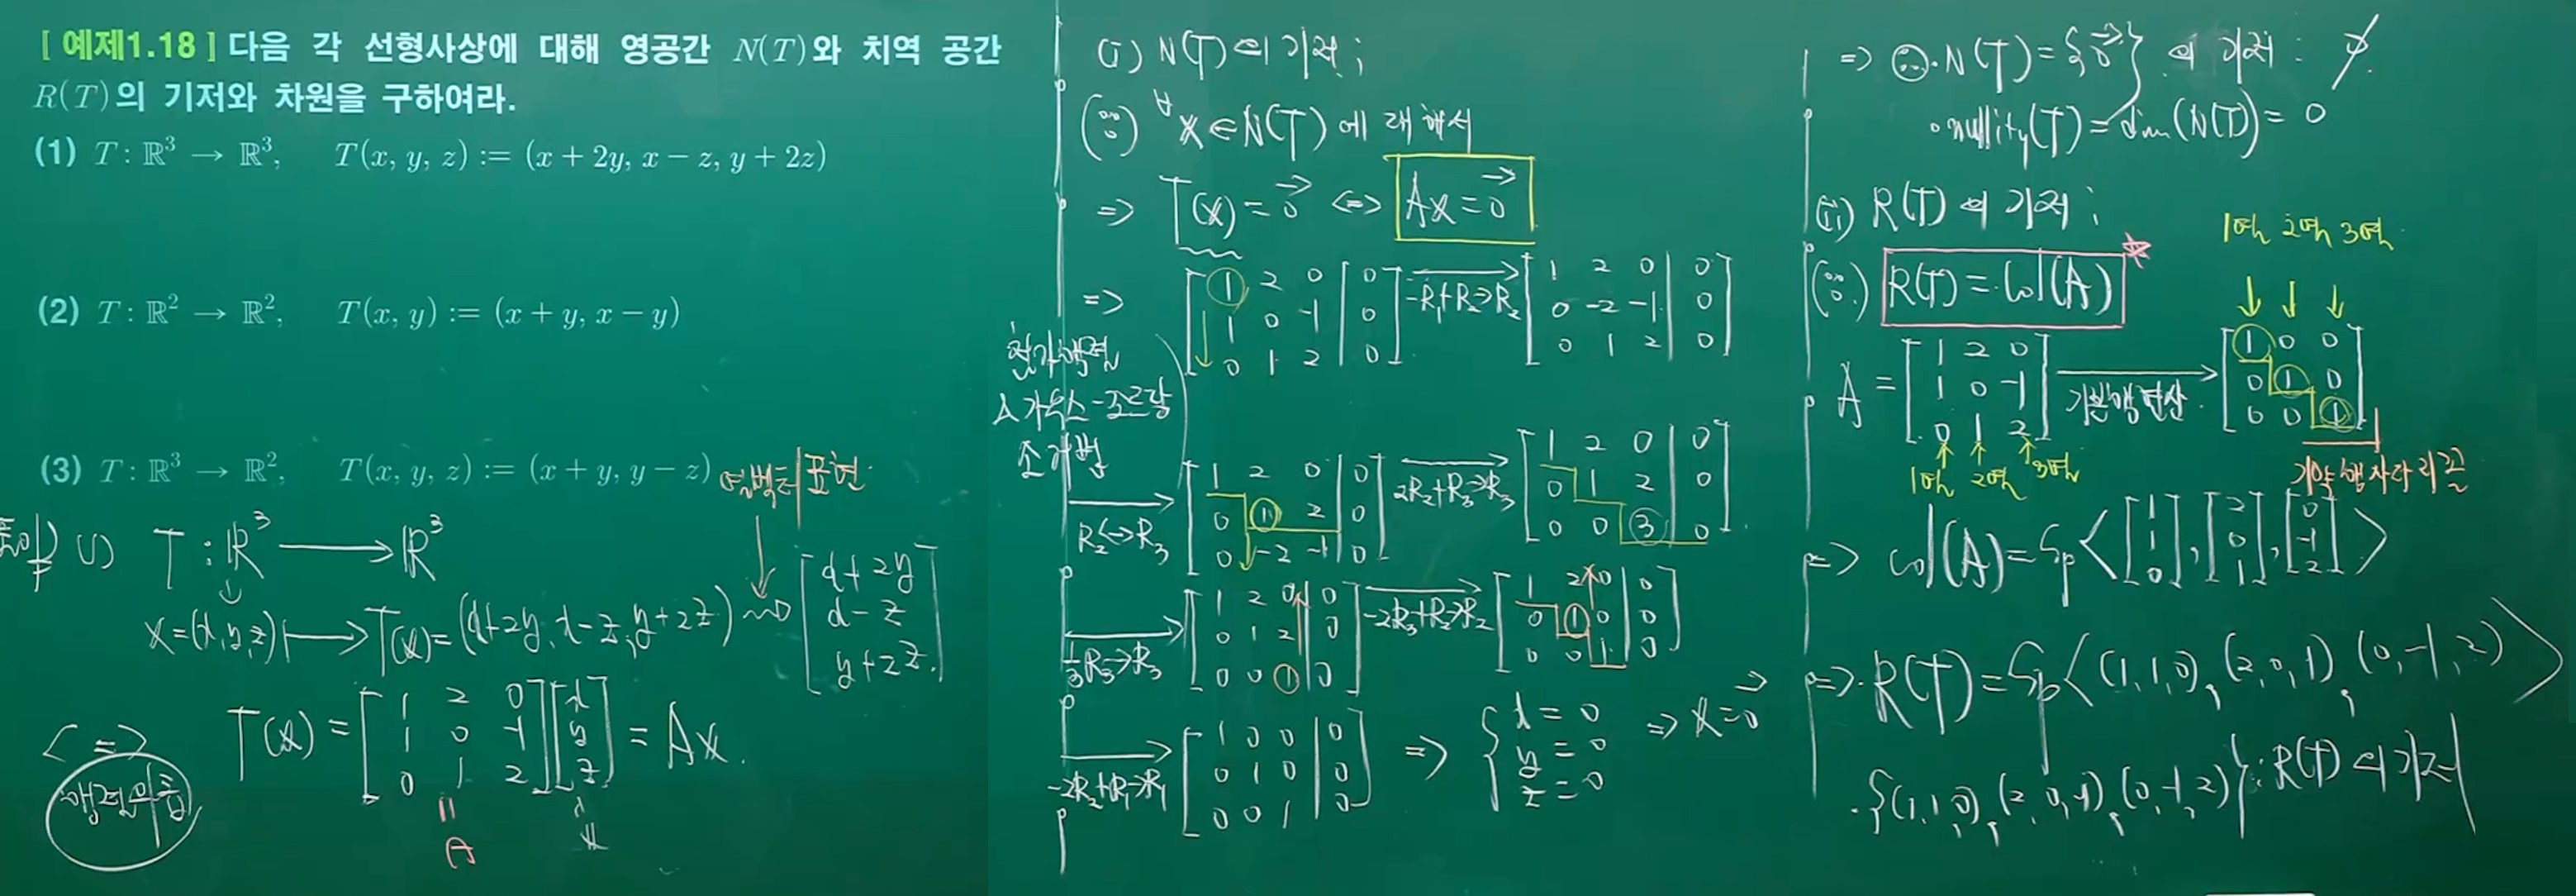 [ 예제1.18 ] 다음 각 선형사상에 대해 영공간 N(T)와 치역 공간
R(T)의 기저와 차원을 구하여라.
(1) T : ℝ³ → ℝ³, T(x, y, z) := (x + 2y, x − z, y + 2z)
(2) T : ℝ² → ℝ², T(x, y) := (x + y, x − y)
(3) T : ℝ³ → ℝ², T(x, y, z) := (x + y, y − z)
열벡터 표현
풀이) (1) T : ℝ³ ⟶ ℝ³
x=(x,y,z) ↦ T(x)=(x+2y, x−z, y+2z) ⇝ [x+2y; x−z; y+2z]
<=> T(x) = [1 2 0; 1 0 -1; 0 1 2][x; y; z] = Ax.
행렬의 곱
A
x
(i) N(T)의 기저 ;
(∵) ∀x∈N(T)에 대해서
=> T(x)=0⃗ <=> Ax=0⃗
=> [1 2 0 | 0; 1 0 -1 | 0; 0 1 2 | 0] -R₁+R₂→R₂ [1 2 0 | 0; 0 -2 -1 | 0; 0 1 2 | 0]
첨가행렬
& 가우스-조르당
소거법
R₂<->R₃ [1 2 0 | 0; 0 1 2 | 0; 0 -2 -1 | 0] 2R₂+R₃→R₃ [1 2 0 | 0; 0 1 2 | 0; 0 0 3 | 0]
⅓R₃→R₃ [1 2 0 | 0; 0 1 2 | 0; 0 0 1 | 0] -2R₃+R₂→R₂ [1 2 0 | 0; 0 1 0 | 0; 0 0 1 | 0]
-2R₂+R₁→R₁ [1 0 0 | 0; 0 1 0 | 0; 0 0 1 | 0] => { x = 0 y = 0 z = 0 => x=0⃗
=> ∴ · N(T)={0⃗}의 기저 : ∅.
· nullity(T)=dim(N(T))= 0
(ii) R(T)의 기저 ;
(∵) R(T)=Col(A) ★
1열 2열 3열
A = [1 2 0; 1 0 -1; 0 1 2] 기본행연산 [1 0 0; 0 1 0; 0 0 1]
1열 2열 3열
기약 행 사다리꼴
=> col(A)=Sp<[1; 1; 0], [2; 0; 1], [0; -1; 2]>
=> R(T)=Sp<(1,1,0), (2,0,1), (0,-1,2)>
· {(1,1,0), (2,0,1), (0,-1,2)} : R(T)의 기저